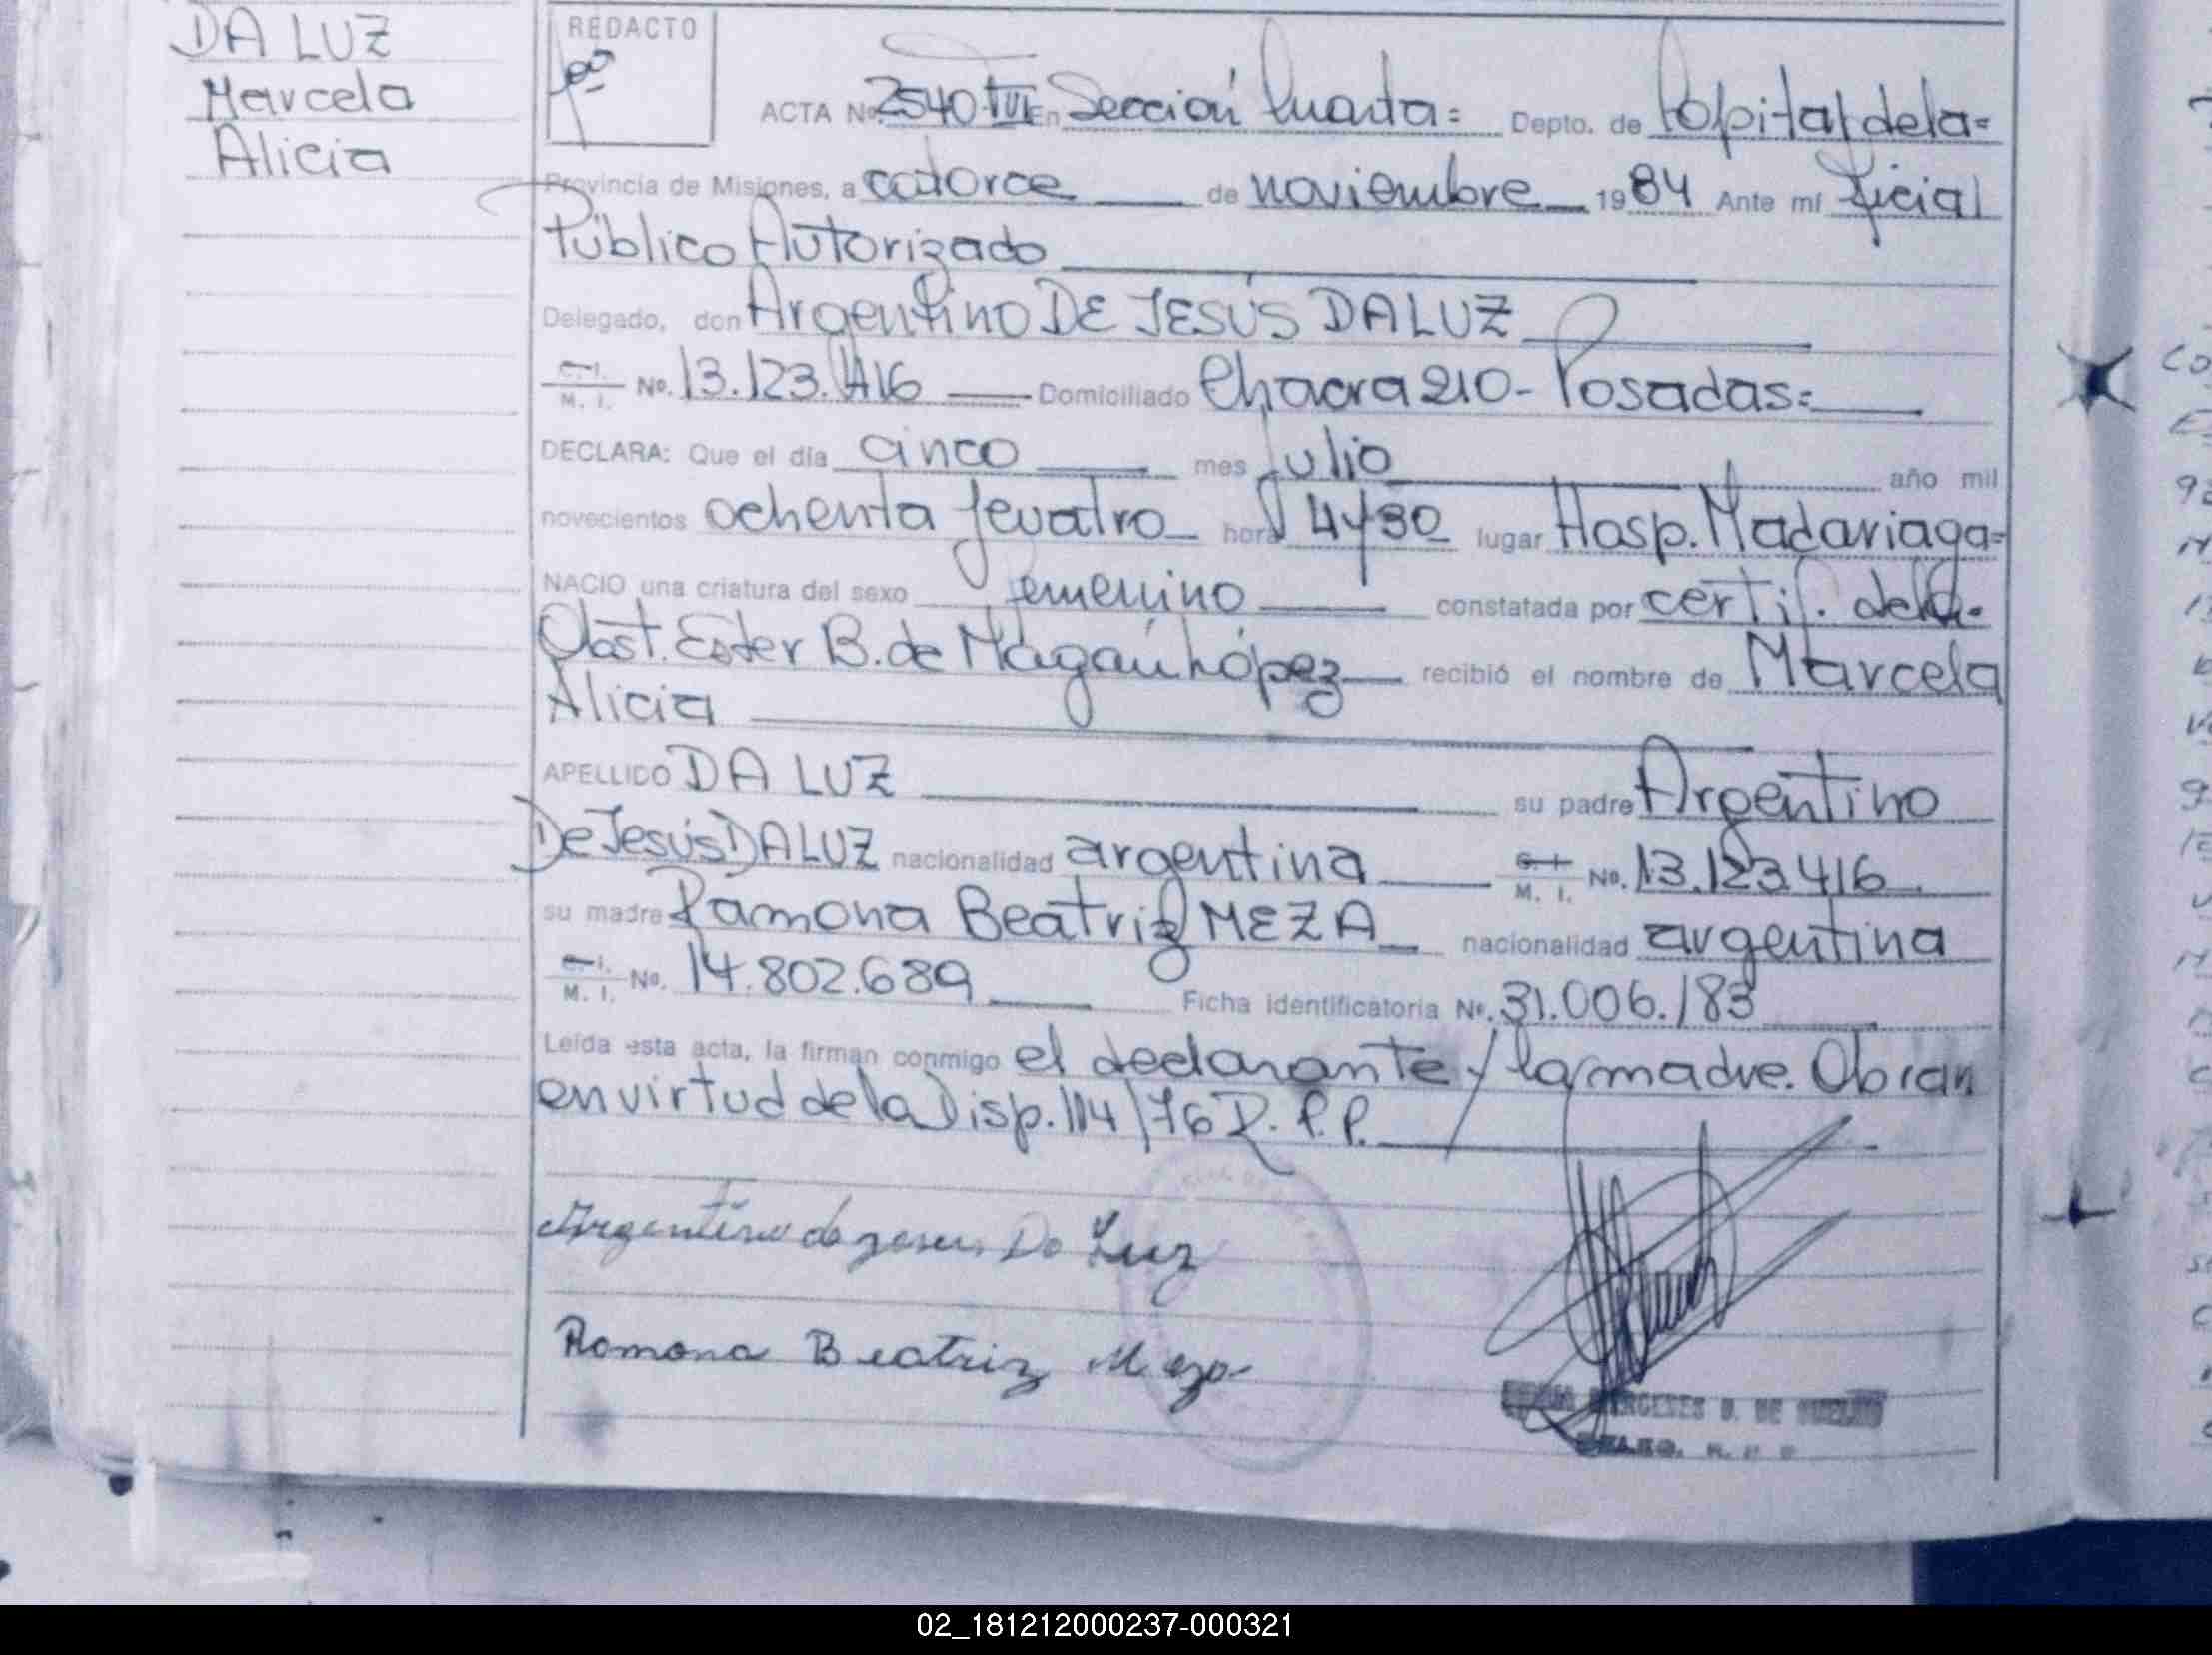 DA LUZ
Marcela
Alicia
REDACTO
ACTA Nº 2540 TVII En Sección Cuarta= Depto. de Capital de la=
Provincia de Misiones, a catorce de noviembre 1984 Ante mí Oficial
Público Autorizado
Delegado, don Argentino DE JESÚS DA LUZ
C. I. M. I. No. 13.123.416 Domiciliado Chacra 210- Posadas=
DECLARA: Que el día cinco mes Julio año mil
novecientos ochenta y cuatro hora 4y30 lugar Hosp. Madariaga=
NACIO una criatura del sexo femenino constatada por certif. de la
Obst. Ester B. de Magaún López recibió el nombre de Marcela
Alicia
APELLIDO DA LUZ su padre Argentino
De Jesús DA LUZ nacionalidad argentina C. I. M. I. No. 13.123.416
su madre Ramona Beatriz MEZA nacionalidad argentina
C. I. M. I. No. 14.802.689 Ficha identificatoria Nº. 31.006./83
Leída esta acta, la firman conmigo el declarante y la madre. Obran
en virtud de la Disp. 114/76 D. R. P.
Argentino de Jesus Da Luz
Ramona Beatriz Meza
02_181212000237-000321